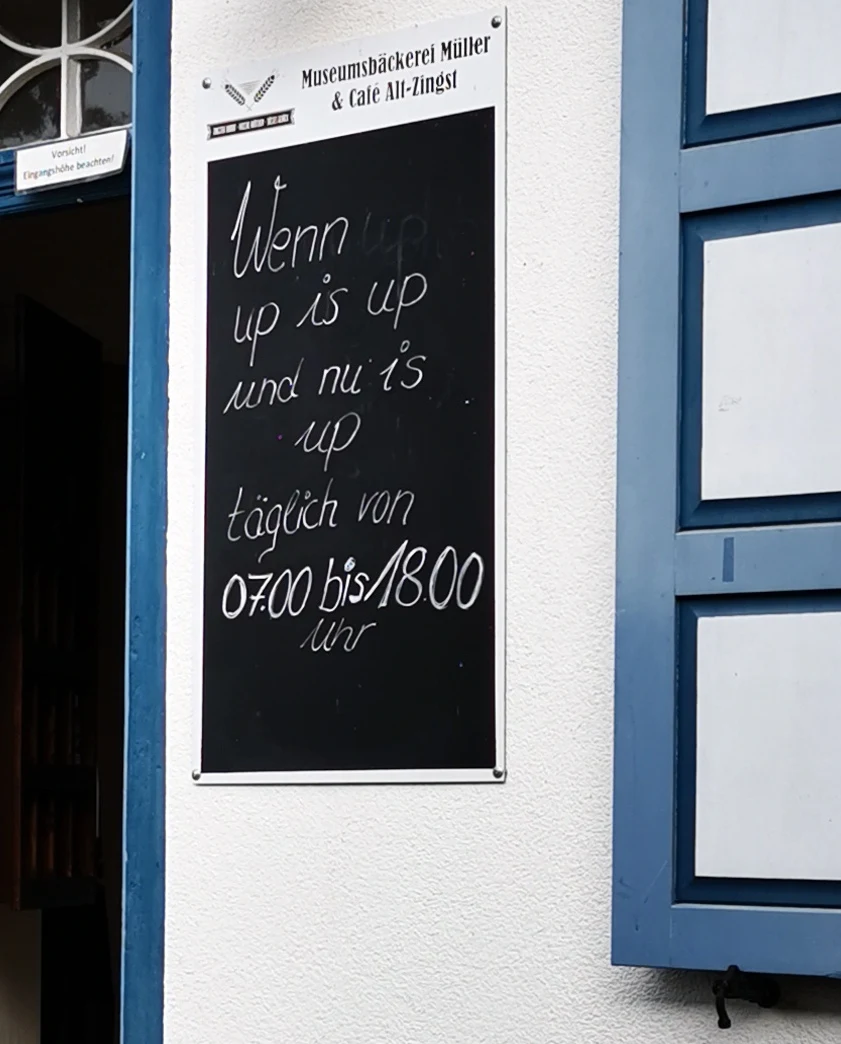 Museumsbäckerei Müller
& Café Alt-Zingst
Vorsicht!
Eingangshöhe beachten!
Wenn up
up is up
und nu is
up
täglich von
07.00 bis 18.00
Uhr